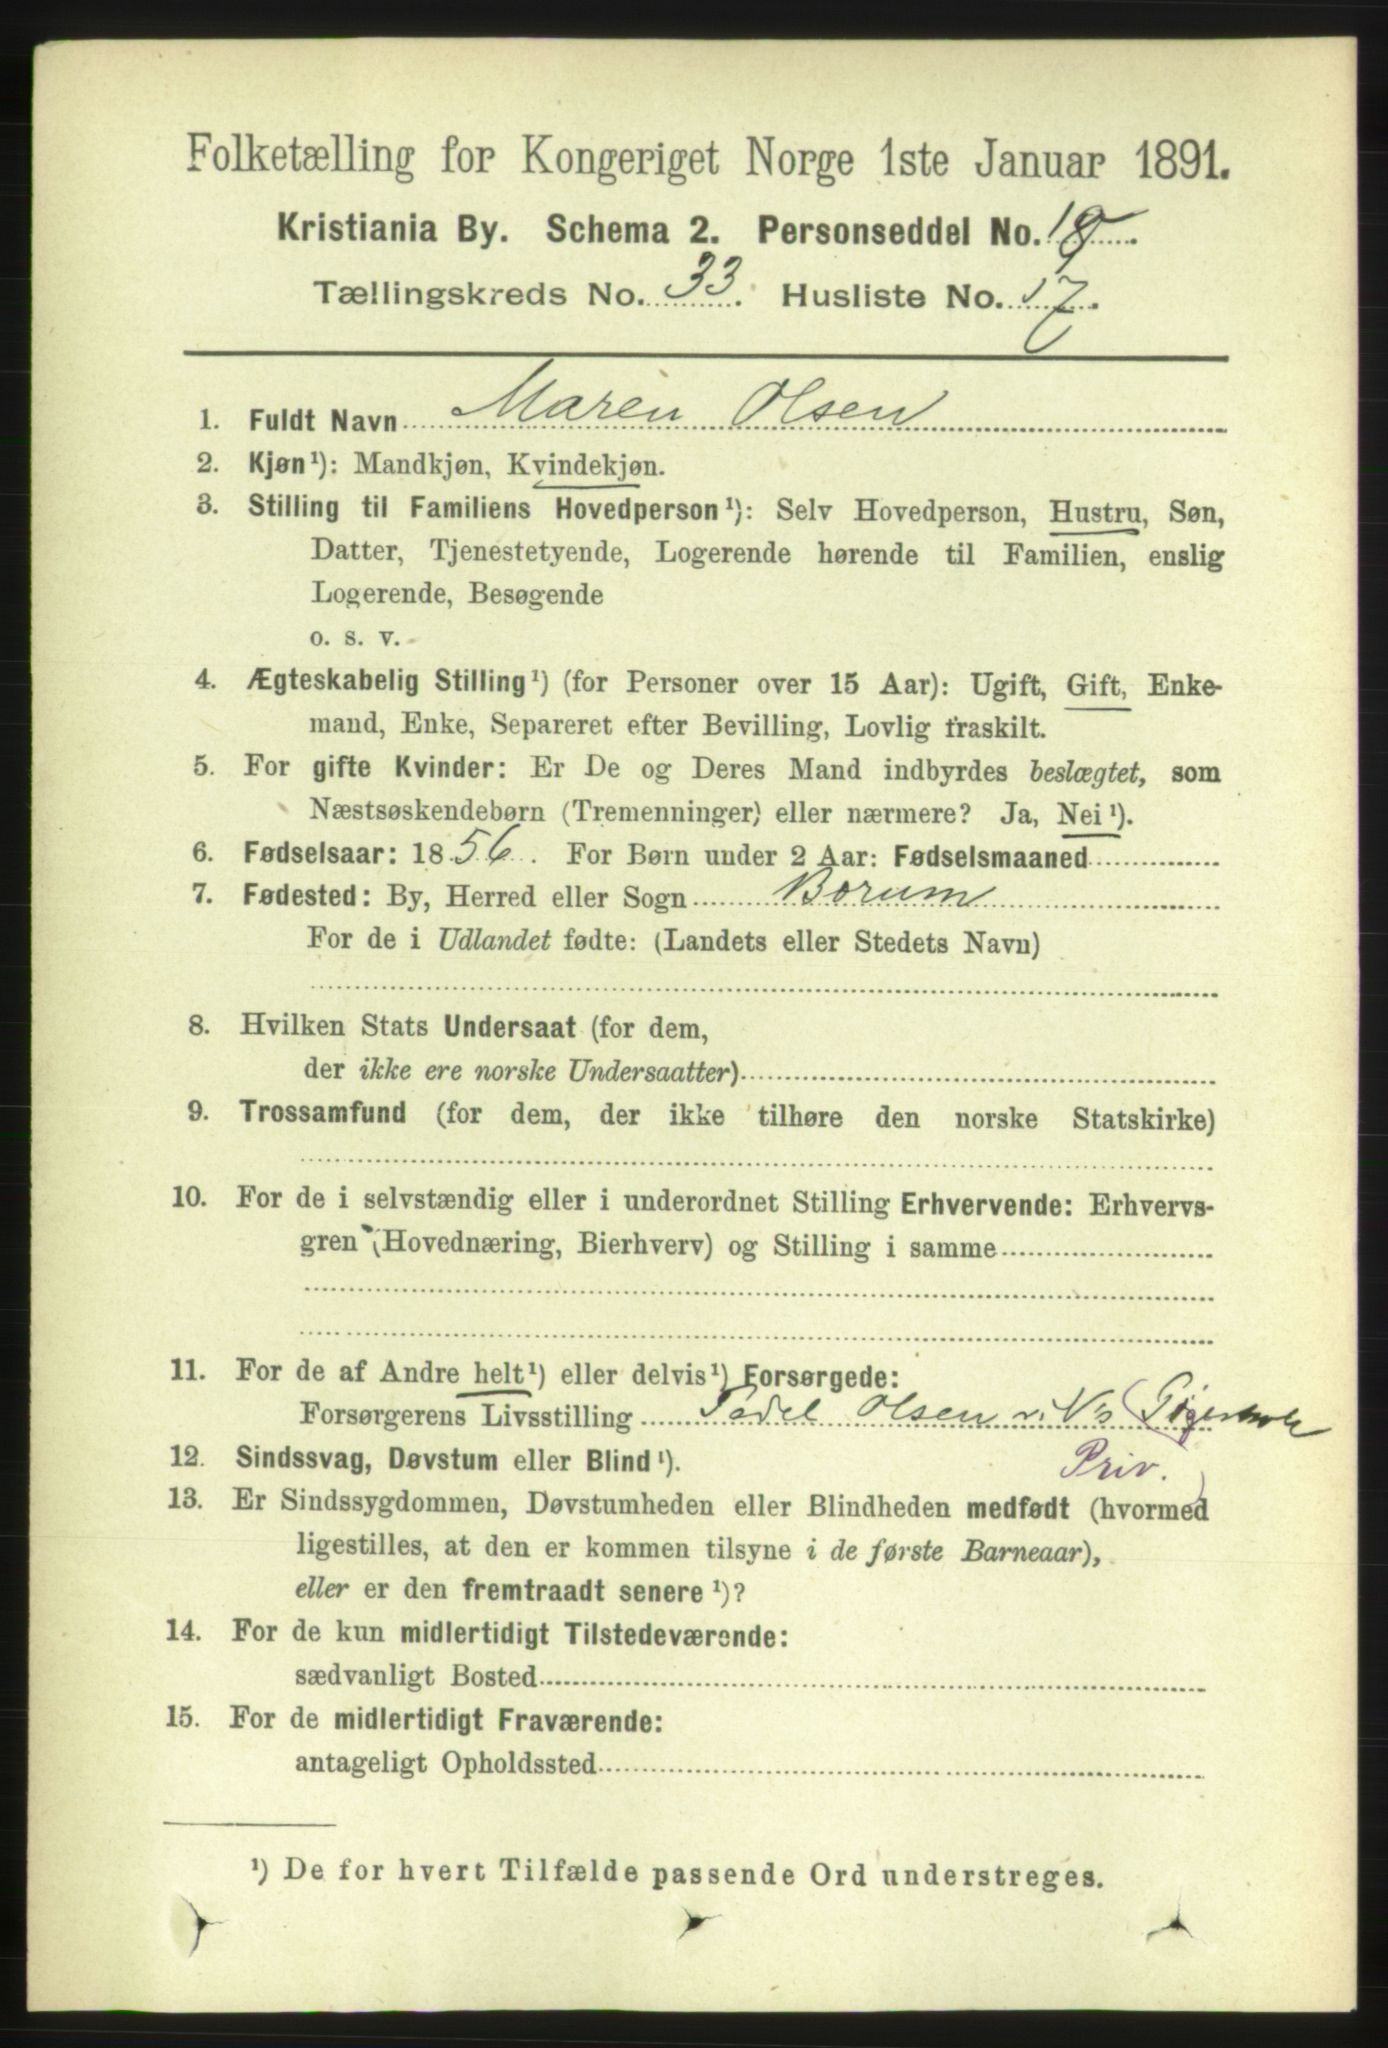 Folketælling for Kongeriget Norge 1ste Januar 1891.
Kristiania By. Schema 2. Personseddel No.
Tællingskreds No. 33. Husliste No. 17.
1. Fuldt Navn Maren Olsen
2. Kjøn¹): Mandkjøn, Kvindekjøn.
3. Stilling til Familiens Hovedperson¹): Selv Hovedperson, Hustru, Søn,
Datter, Tjenestetyende, Logerende hørende til Familien, enslig
Logerende, Besøgende
o. s. v.
4. Ægteskabelig Stilling¹) (for Personer over 15 Aar): Ugift, Gift, Enke-
mand, Enke, Separeret efter Bevilling, Lovlig fraskilt.
5. For gifte Kvinder: Er De og Deres Mand indbyrdes beslægtet, som
Næstsøskendebørn (Tremenninger) eller nærmere? Ja, Nei¹).
6. Fødselsaar: 1856. For Børn under 2 Aar: Fødselsmaaned
7. Fødested: By, Herred eller Sogn Borum
For de i Udlandet fødte: (Landets eller Stedets Navn)
8. Hvilken Stats Undersaat (for dem,
der ikke ere norske Undersaatter)
9. Trossamfund (for dem, der ikke tilhøre den norske Statskirke)
10. For de i selvstændig eller i underordnet Stilling Erhvervende: Erhvervs-
gren (Hovednæring, Bierhverv) og Stilling i samme
11. For de af Andre helt¹) eller delvis¹) Forsørgede:
Forsørgerens Livsstilling Olsen
Priv.
12. Sindssvag, Døvstum eller Blind¹).
13. Er Sindssygdommen, Døvstumheden eller Blindheden medfødt (hvormed
ligestilles, at den er kommen tilsyne i de første Barneaar),
eller er den fremtraadt senere¹)?
14. For de kun midlertidigt Tilstedeværende:
sædvanligt Bosted
15. For de midlertidigt Fraværende:
antageligt Opholdssted
¹) De for hvert Tilfælde passende Ord understreges.